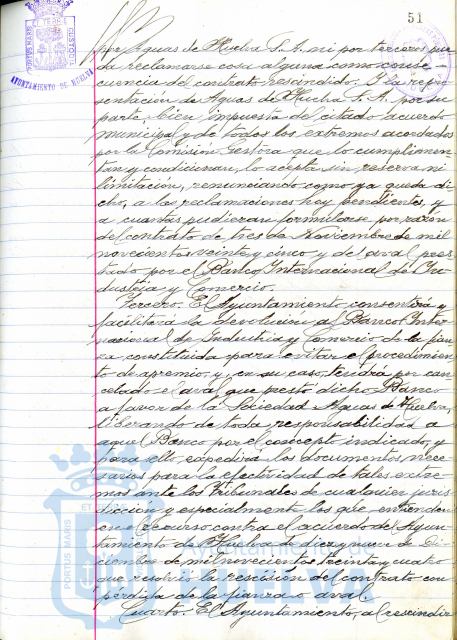 51
AYUNTAMIENTO DE HUELVA
por Aguas de Huelva S. A. ni por terceros pue
da reclamarse cosa alguna como conse
cuencia del contrato rescindido. Y la repre
sentación de Aguas de Huelva S. A. por su
parte, bien impuesta del citado acuerdo
municipal y de todos los extremos acordados
por la Comisión Gestora que lo cumplimen
tan y condicionan, lo acepta sin reserva ni
limitación, renunciando como ya queda di
cho, a las reclamaciones hoy pendientes, y
a cuantas pudieran formularse por razón
del contrato de tres de Noviembre de mil
novecientos veinte y cinco y del aval pres
tado por el Banco Internacional de In
dustria y Comercio.
Tercero. El Ayuntamiento consentirá y
facilitará la devolución al Banco Inter
nacional de Industria y Comercio de la fian
za constituida para evitar el procedimien
to de apremio y, en su caso, tendrá por can
celado el aval que prestó dicho Banco
a favor de la Sociedad Aguas de Huelva,
liberando de toda responsabilidad a
aquel Banco por el concepto indicado, y
para ello, expedirá los documentos nece
sarios para la efectividad de tales extre
mos ante los Tribunales de cualquier juris
dicción y especialmente los que entienden
en el recurso contra el acuerdo del Ayun
tamiento de Huelva de diez y nueve de Di
ciembre de mil novecientos treinta y cuatro
que resolvió la rescisión del contrato con
pérdida de la fianza o aval.
Cuarto. El Ayuntamiento, al rescindir
PORTUS MARIS ET
Ayuntamiento de
HUELVA